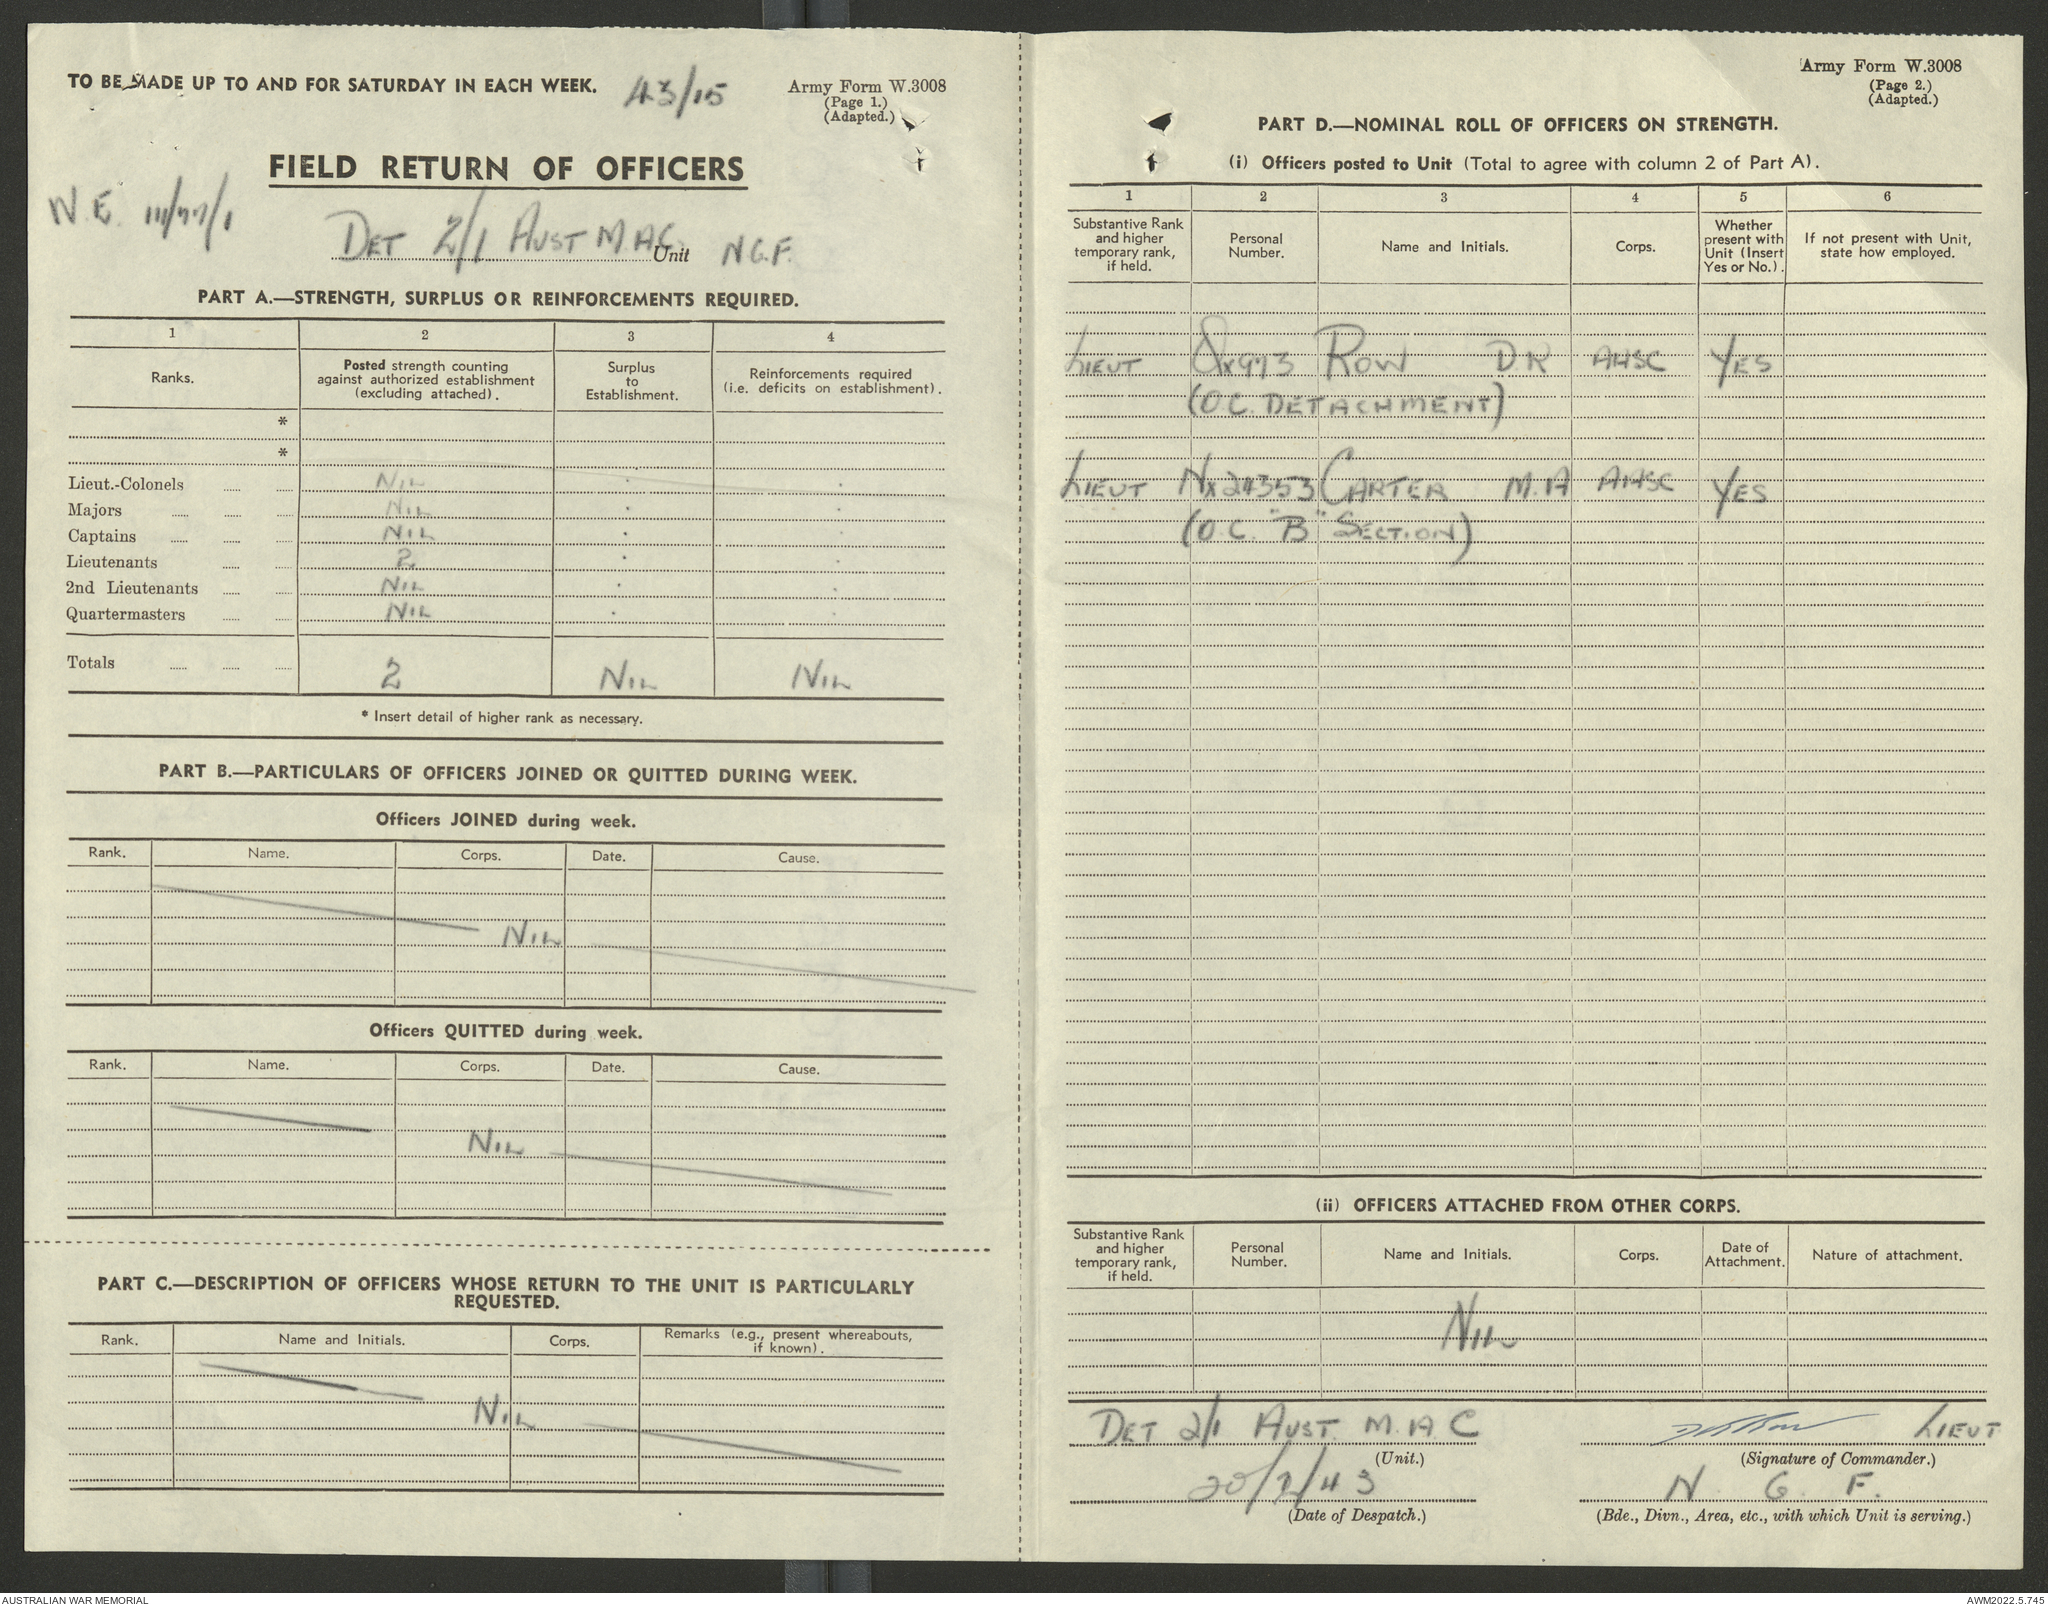 TO BE MADE UP TO AND FOR SATURDAY IN EACH WEEK. 43/15
Army Form W.3008
(Page 1.)
(Adapted.)
FIELD RETURN OF OFFICERS
N.E. 111/77/1
DET 2/1 AUST M.A.C. Unit N.G.F.
PART A.—STRENGTH, SURPLUS OR REINFORCEMENTS REQUIRED.
1 2 3 4
Ranks. Posted strength counting against authorized establishment (excluding attached). Surplus to Establishment. Reinforcements required (i.e. deficits on establishment).
*
*
Lieut.-Colonels NIL
Majors NIL
Captains NIL
Lieutenants 2
2nd Lieutenants NIL
Quartermasters NIL
Totals 2 NIL NIL
* Insert detail of higher rank as necessary.
PART B.—PARTICULARS OF OFFICERS JOINED OR QUITTED DURING WEEK.
Officers JOINED during week.
Rank. Name. Corps. Date. Cause.
NIL
Officers QUITTED during week.
Rank. Name. Corps. Date. Cause.
NIL
PART C.—DESCRIPTION OF OFFICERS WHOSE RETURN TO THE UNIT IS PARTICULARLY
REQUESTED.
Rank. Name and Initials. Corps. Remarks (e.g., present whereabouts, if known).
NIL
Army Form W.3008
(Page 2.)
(Adapted.)
PART D.—NOMINAL ROLL OF OFFICERS ON STRENGTH.
(i) Officers posted to Unit (Total to agree with column 2 of Part A).
1 2 3 4 5 6
Substantive Rank and higher temporary rank, if held. Personal Number. Name and Initials. Corps. Whether present with Unit (Insert Yes or No.). If not present with Unit, state how employed.
LIEUT ROW D R AASC YES
(O.C. DETACHMENT)
LIEUT NX24353 CARTER M.A AASC YES
(O.C. "B" SECTION)
(ii) OFFICERS ATTACHED FROM OTHER CORPS.
Substantive Rank and higher temporary rank, if held. Personal Number. Name and Initials. Corps. Date of Attachment. Nature of attachment.
NIL
DET 2/1 AUST. M.A.C LIEUT
(Unit.) (Signature of Commander.)
20/2/43 N. G. F.
(Date of Despatch.) (Bde., Divn., Area, etc., with which Unit is serving.)
AUSTRALIAN WAR MEMORIAL AWM2022.5.745